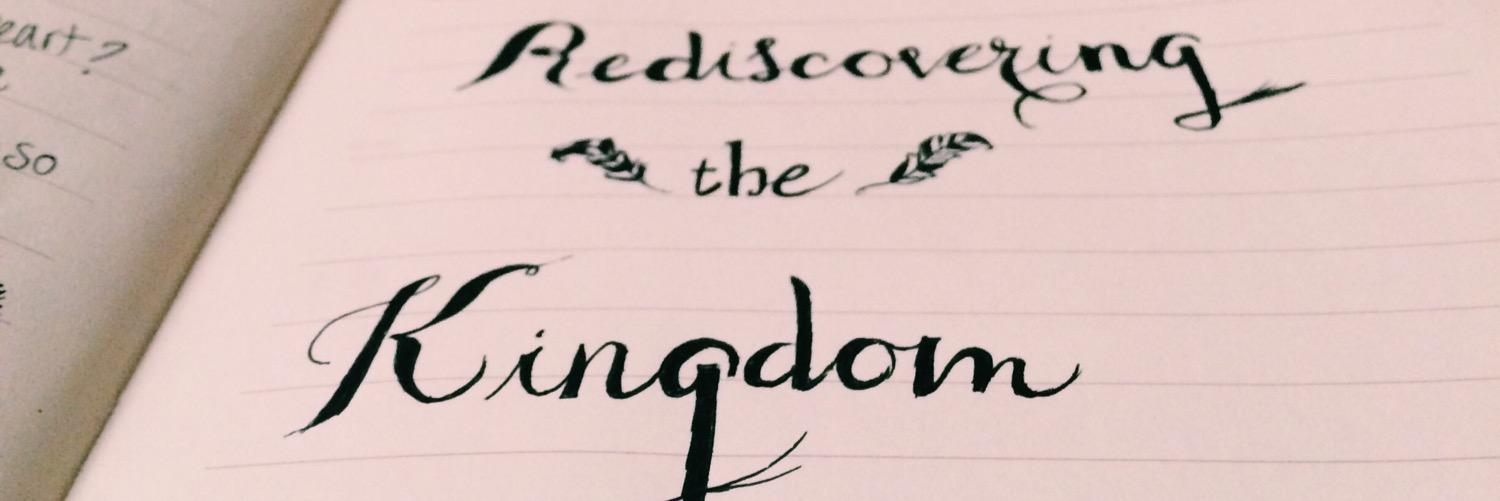 eart?
so
Rediscovering
the
Kingdom